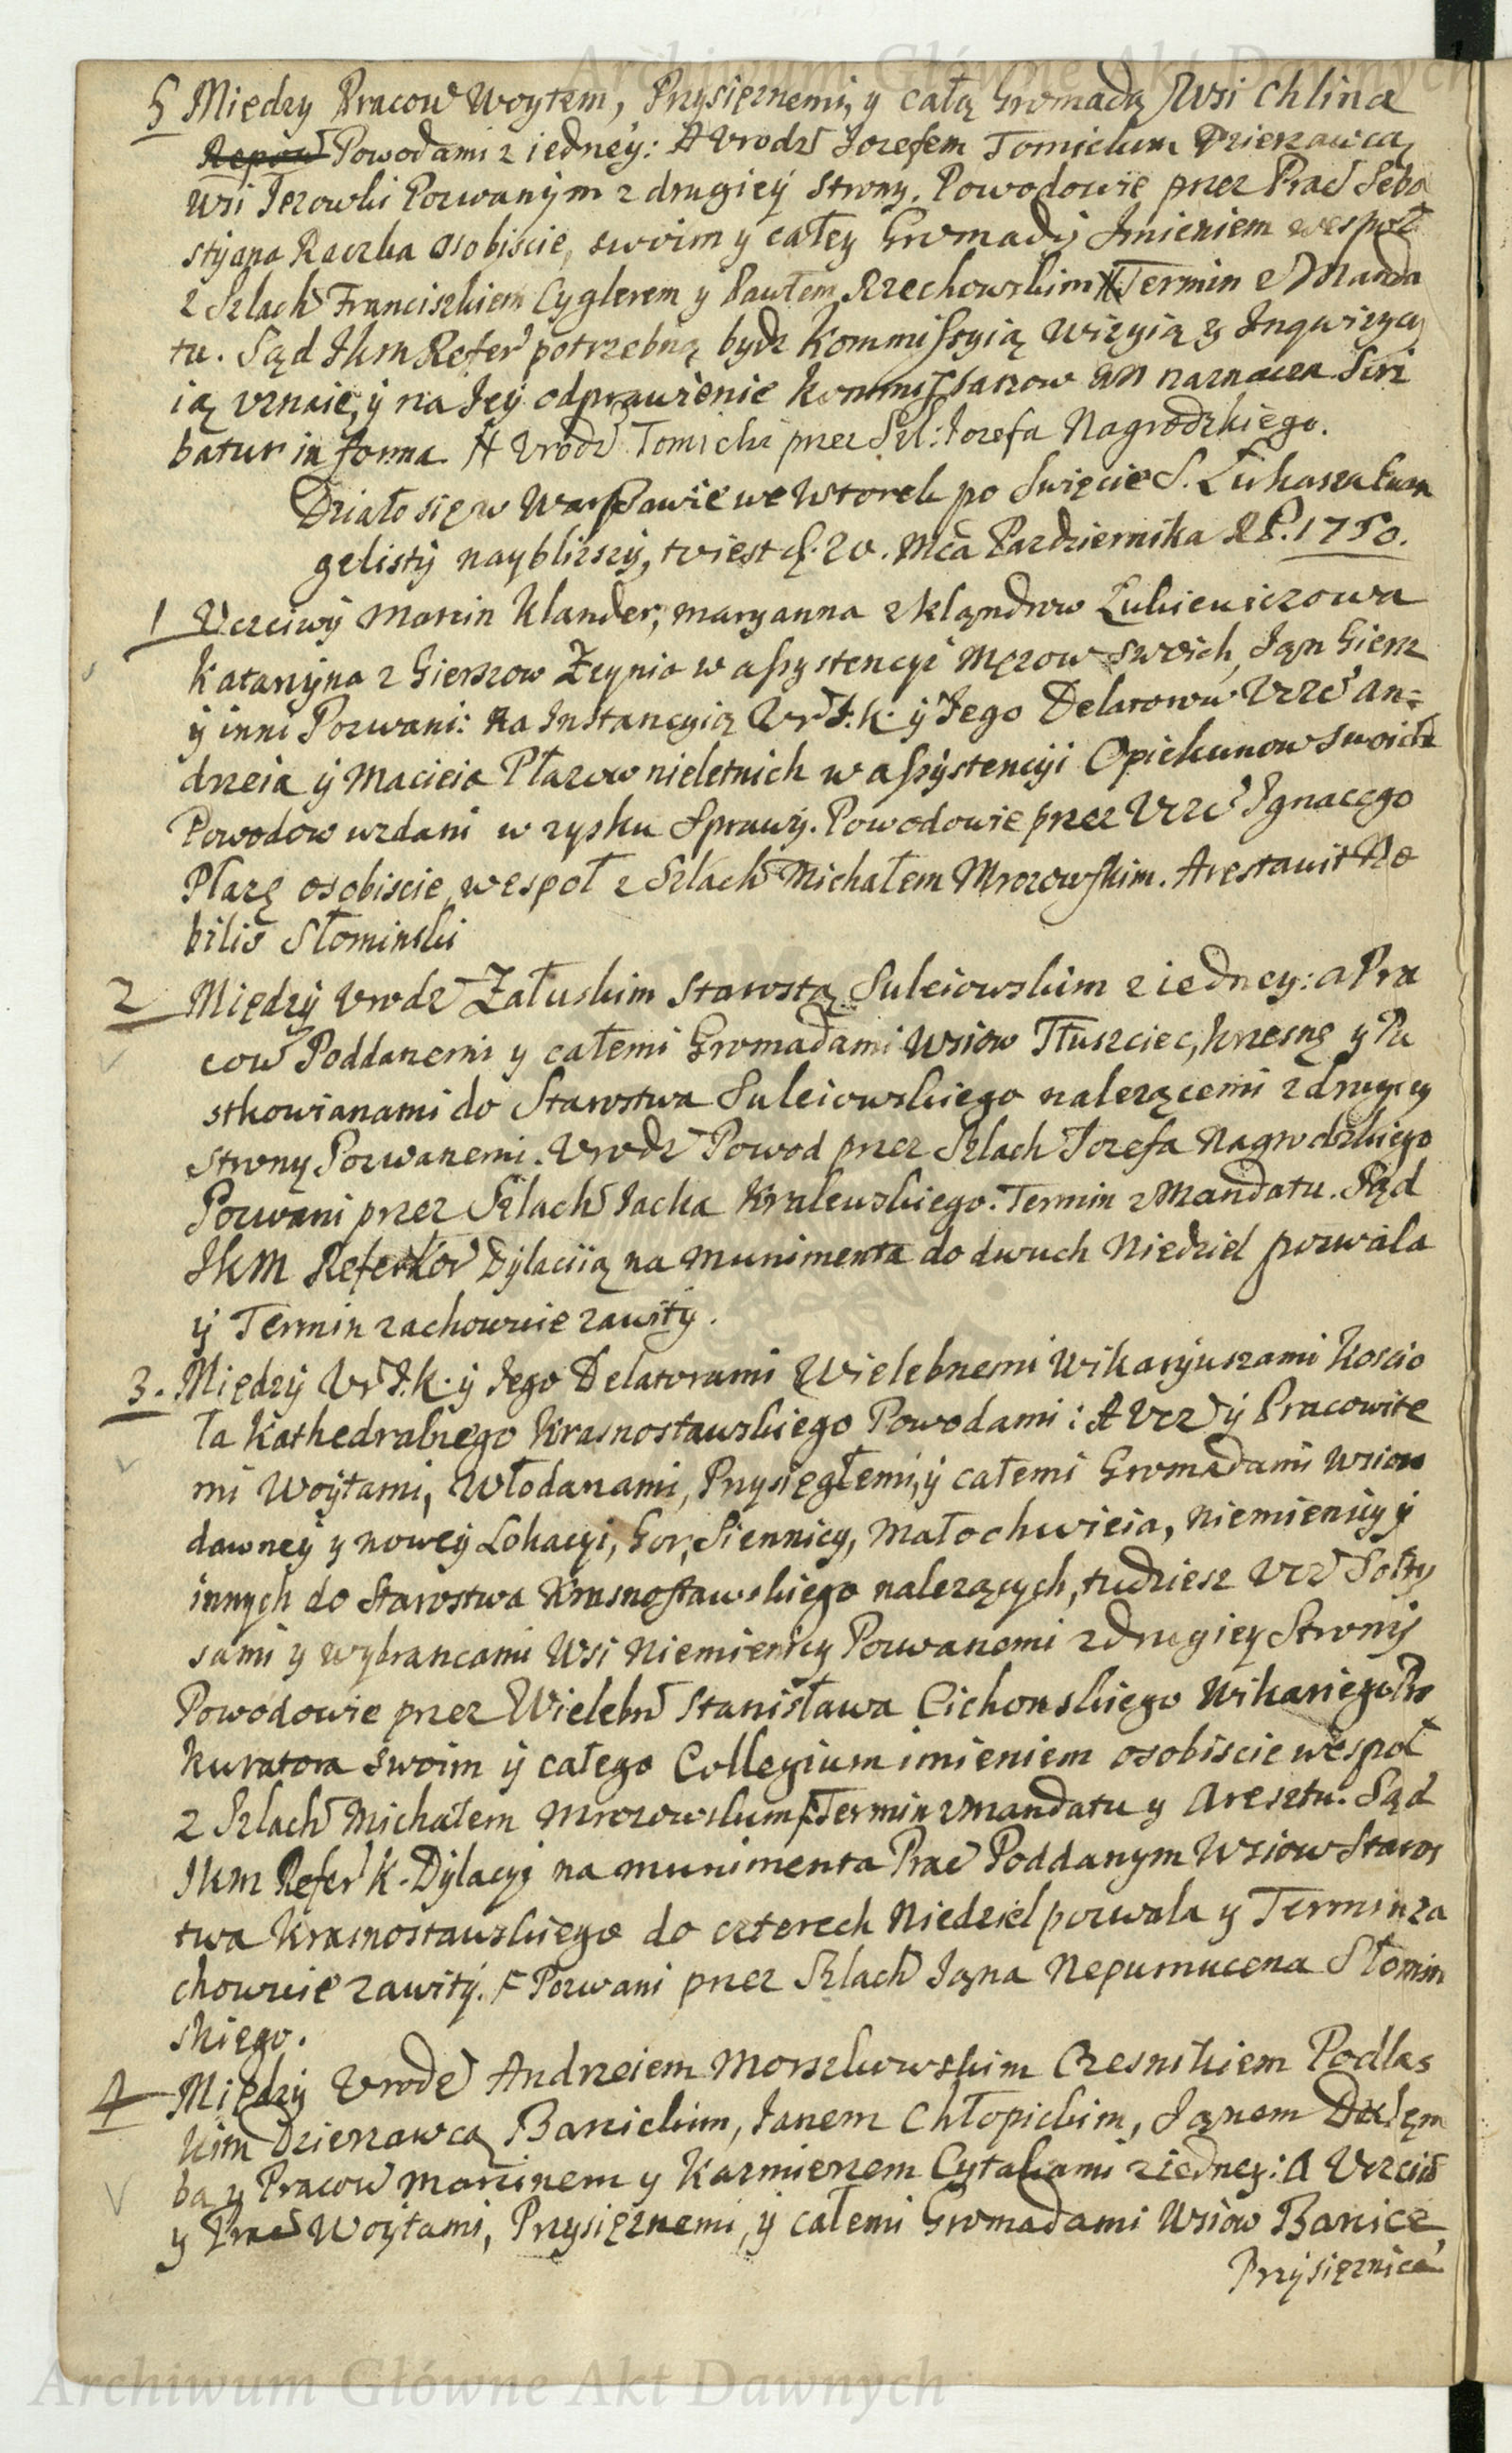 Archiwum Główne Akt Dawnych
5 Między Pracow Woytem, Przysięznemi, y całą Gromadą Wsi Chlina
Repow Powodami z iedney: A Urodz Jozefem Tomickim Dzierzawcą
Wsi Jezowki Pozwanym z drugiey strony. Powodowie przez Prac Seba
styana Raczka osobiscie, swoim y całey Gromady Imieniem wespoł
z Szlach Franciszkiem Cyglerem y Pawłem Rzechowskim Termin z Manda
tu. Sąd Jkm Refer potrzebną bydz Kommissyią Wizyią y Inqwizyc
ią uznaie, y na Jey odprawienie Kommissarzow NN naznacza Scri
batur in forma. A Urodz Tomicki przez Szl: Jozefa Nagrodzkiego.
Działo się w Warssawie we Wtorek po Swięcie S. Łukasza Ewan
gelisty nayblizszy, to iest d. 20. Mca Pazdziernika RP. 1750.
1 Uczciwy Marcin Klander, Maryanna z Klandrow Łukiewiczowa
Katarzyna z Gierszow Zzynio w assystencyi Męzow swoich, Jan Giersz
y inni Pozwani: Na Instancyią Ur J.K. y Jego Delatorow Uczc An=
drzeia y Macieia Płazow nieletnich w assystencyi Opiekunow swoich
Powodow wzdani w zysku Sprawy. Powodowie przez Uczc Ignacego
Płazę osobiscie wespoł z Szlach Michałem Mrozowskim. Arestavit No
bilis Słominski
2 Między Urodz Załuskim Starostą Suleiowskim z iedney: a Pra
cow Poddanemi y całemi Gromadami Wsiow Tłuszciec, Krzesnę y Pu
stkowianami do Starostwa Suleiowskiego nalezącemi z drugiey
strony Pozwanemi. Urodz Powod przez Szlach Jozefa Nagrodzkiego
Pozwani przez Szlach Jacka Kralewskiego. Termin z Mandatu. Sąd
Jkm Referkor Dylaciią na Munimenta do dwuch Niedziel pozwala
y Termin zachowuie zawity.
3. Między Ur J.K. y Jego Delatorami Wielebnemi Wikaryuszami Koscio
ła Kathedralnego Krasnostawskiego Powodami: A Ucz y Pracowite
mi Woytami, Włodarzami, Przysięgłemi, y całemi Gromadami Wsiow
dawney y nowey Lokacyi, Gor, Siennicy, Małochwieia, Niemienicy y
innych do Starostwa Krasnostawskiego nalezących, tudziesz Ucz Sołty
sami y wybrancami Wsi Niemienicy Pozwanemi z drugiey Strony
Powodowie przez Wielebn Stanisława Cichonskiego Wikariego Pro
kuratora swoim y całego Collegium imieniem osobiscie wespoł
z Szlach Michałem Mrozowskim Termin z Mandatu y Aresztu. Sąd
Jkm Refer K. Dylacyi na munimenta Prac Poddanym Wsiow Staros
twa Krasnostawskiego do czterech Niedziel pozwala y Termin za
chowuie zawity. Pozwani przez Szlach Jana Nepumucena Słomin
skiego.
4 Między Urodz Andrzeiem Morszkowskim Czesnikiem Podlas
kim Dzierzawcą Banickim, Janem Chłopickim, Janem Dulęm
ba y Pracow Marcinem y Kazmierzem Cytakami z iedney: A Uczciw
y Prac Woytami, Przysięznemi, y całemi Gromadami Wsiow Banice
Przysięznica
Archiwum Główne Akt Dawnych